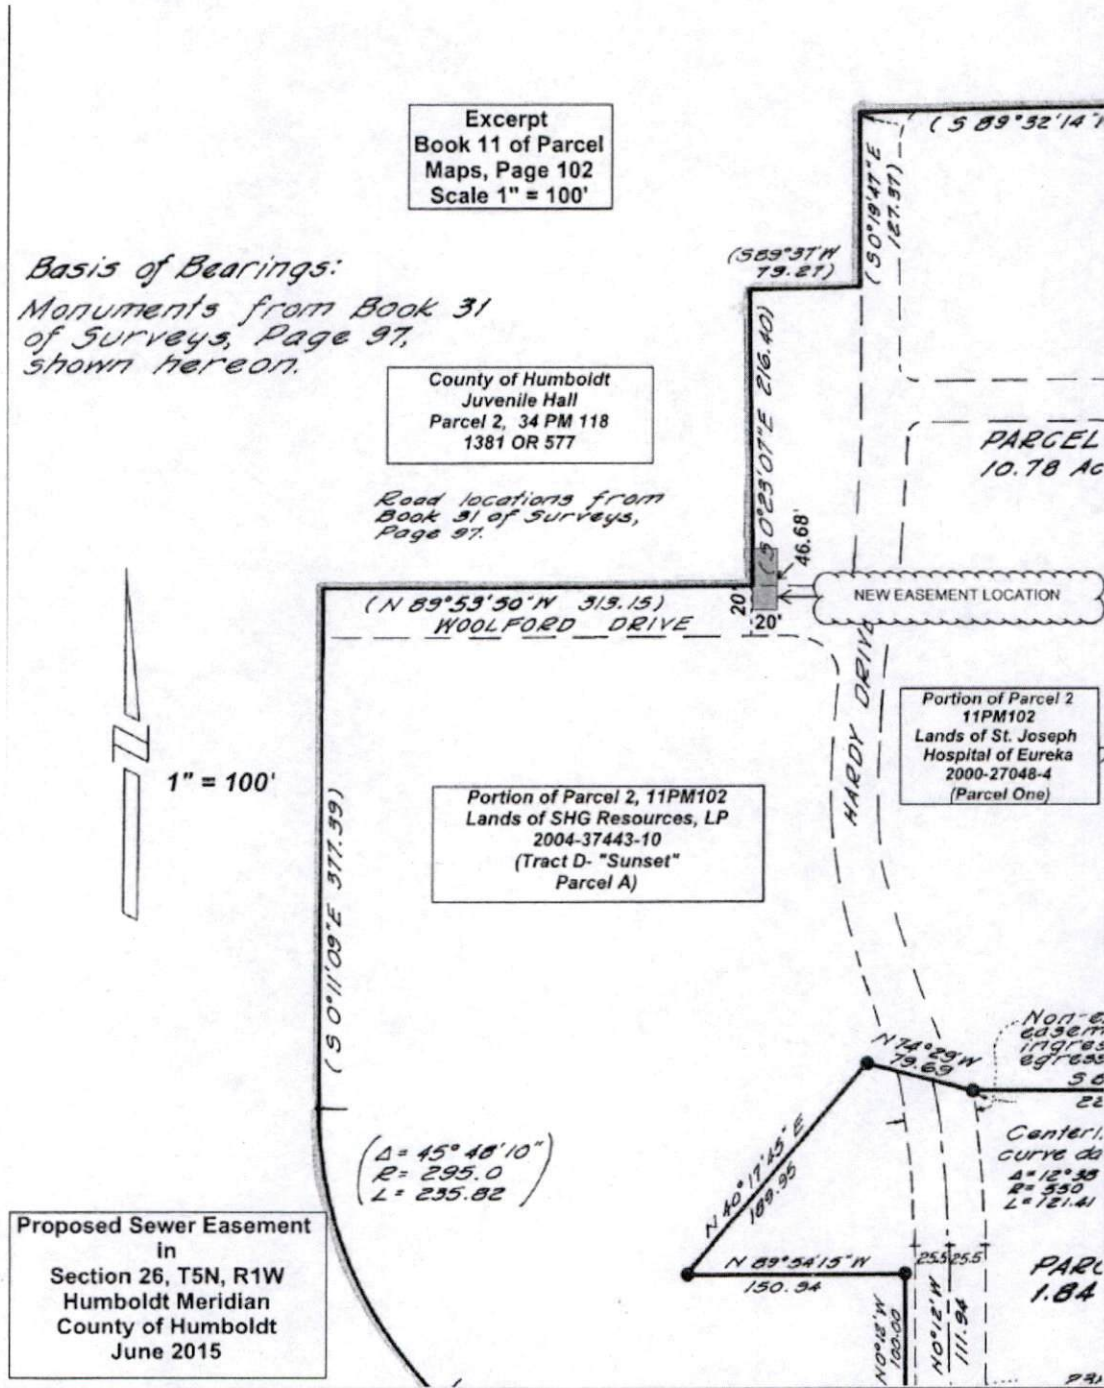 Excerpt
Book 11 of Parcel
Maps, Page 102
Scale 1" = 100'
( S 89°32'14"
( S 0°19'47"E
127.37)
(S89°37'W
79.27)
Basis of Bearings:
Monuments from Book 31
of Surveys, Page 97,
shown hereon.
County of Humboldt
Juvenile Hall
Parcel 2, 34 PM 118
1381 OR 577
( S 0°23'07"E 216.40)
PARCEL
10.78 Ac
Road locations from
Book 31 of Surveys,
Page 97.
46.68'
NEW EASEMENT LOCATION
( N 89°53'50"W 313.15)
WOOLFORD DRIVE
20'
20'
HARDY DRIVE
Portion of Parcel 2
11PM102
Lands of St. Joseph
Hospital of Eureka
2000-27048-4
(Parcel One)
1" = 100'
Portion of Parcel 2, 11PM102
Lands of SHG Resources, LP
2004-37443-10
(Tract D- "Sunset"
Parcel A)
( S 0°11'09"E 377.39)
Non-e
easem
ingres
egress
N 74°29'W
79.69
S 8
22
Centerl
curve da
Δ=12°38
R= 550
L=121.41
(Δ= 45°48'10"
R= 295.0
L= 235.82)
N 40°17'45" E
189.95
N 89°54'15"W
150.94
25.5 25.5
PARC
1.84
N0°12'W
100.00
N0°12'W
111.94
Proposed Sewer Easement
in
Section 26, T5N, R1W
Humboldt Meridian
County of Humboldt
June 2015